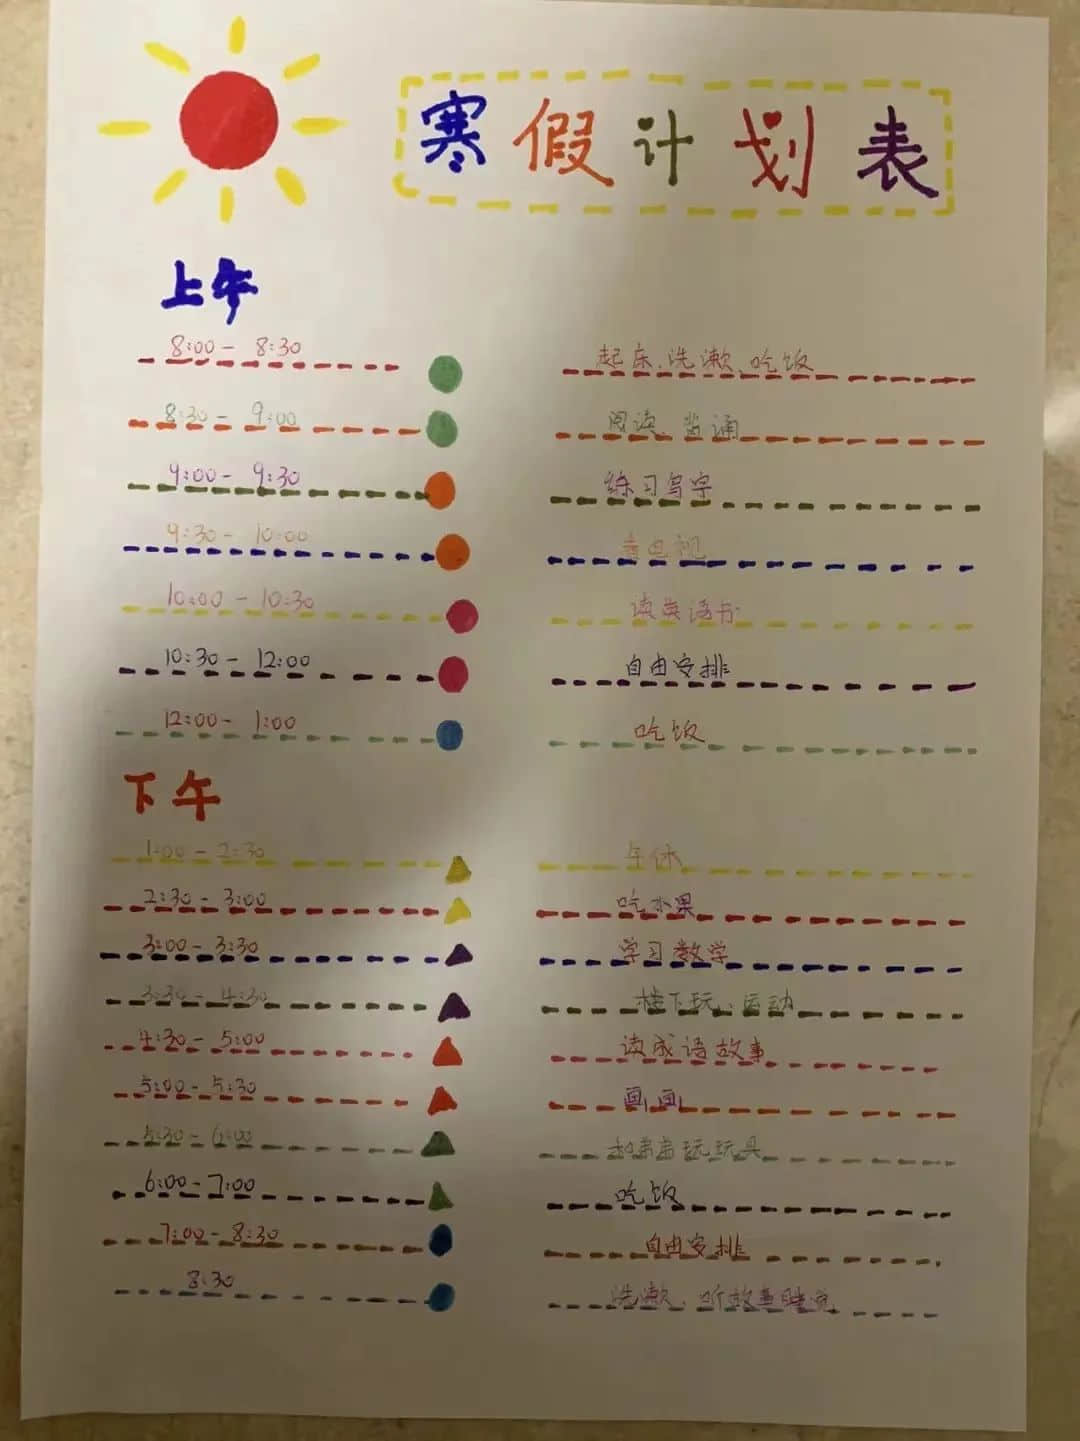 寒假计划表
上午
8:00 - 8:30 起床、洗漱、吃饭
8:30 - 9:00 阅读、背诵
9:00 - 9:30 练习写字
9:30 - 10:00 看电视
10:00 - 10:30 读英语书
10:30 - 12:00 自由安排
12:00 - 1:00 吃饭
下午
1:00 - 2:30 午休
2:30 - 3:00 吃水果
3:00 - 3:30 学习数学
3:30 - 4:30 楼下玩、运动
4:30 - 5:00 读成语故事
5:00 - 5:30 画画
5:30 - 6:00 和弟弟玩玩具
6:00 - 7:00 吃饭
7:00 - 8:30 自由安排
8:30 洗漱、听故事睡觉